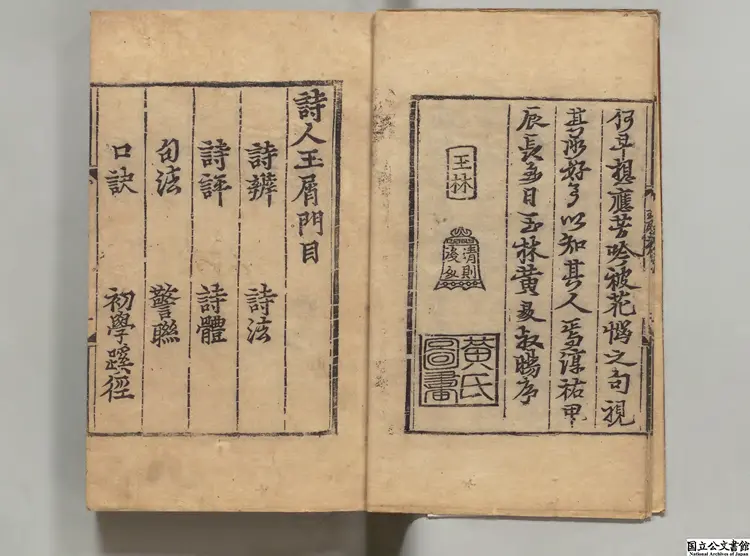 何早想應苦吟被花惱之句視
其所好可以知其人焉淳祐甲
辰長至日玉林黄昇叔暘序
玉林
清則
黃氏圖書
詩人玉屑門目
詩辨 詩法
詩評 詩體
句法 警聯
口訣 初學蹊徑
国立公文書館
National Archives of Japan